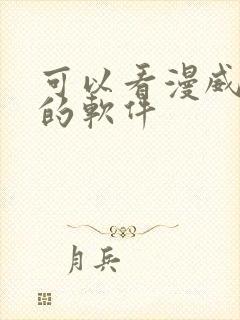 可以看漫威
的軟件
月兵